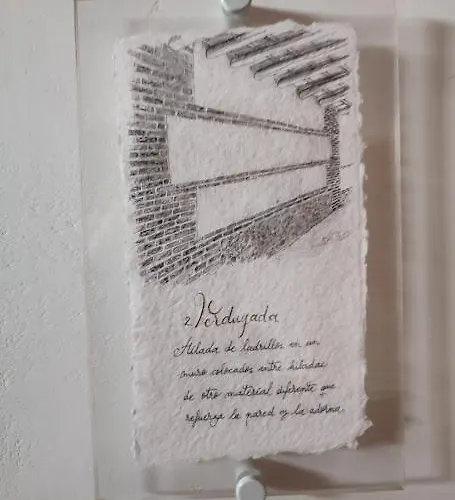 2. Verdugada
Hilada de ladrillos en un
muro colocados entre hiladas
de otro material diferente que
refuerza la pared y la adorna.